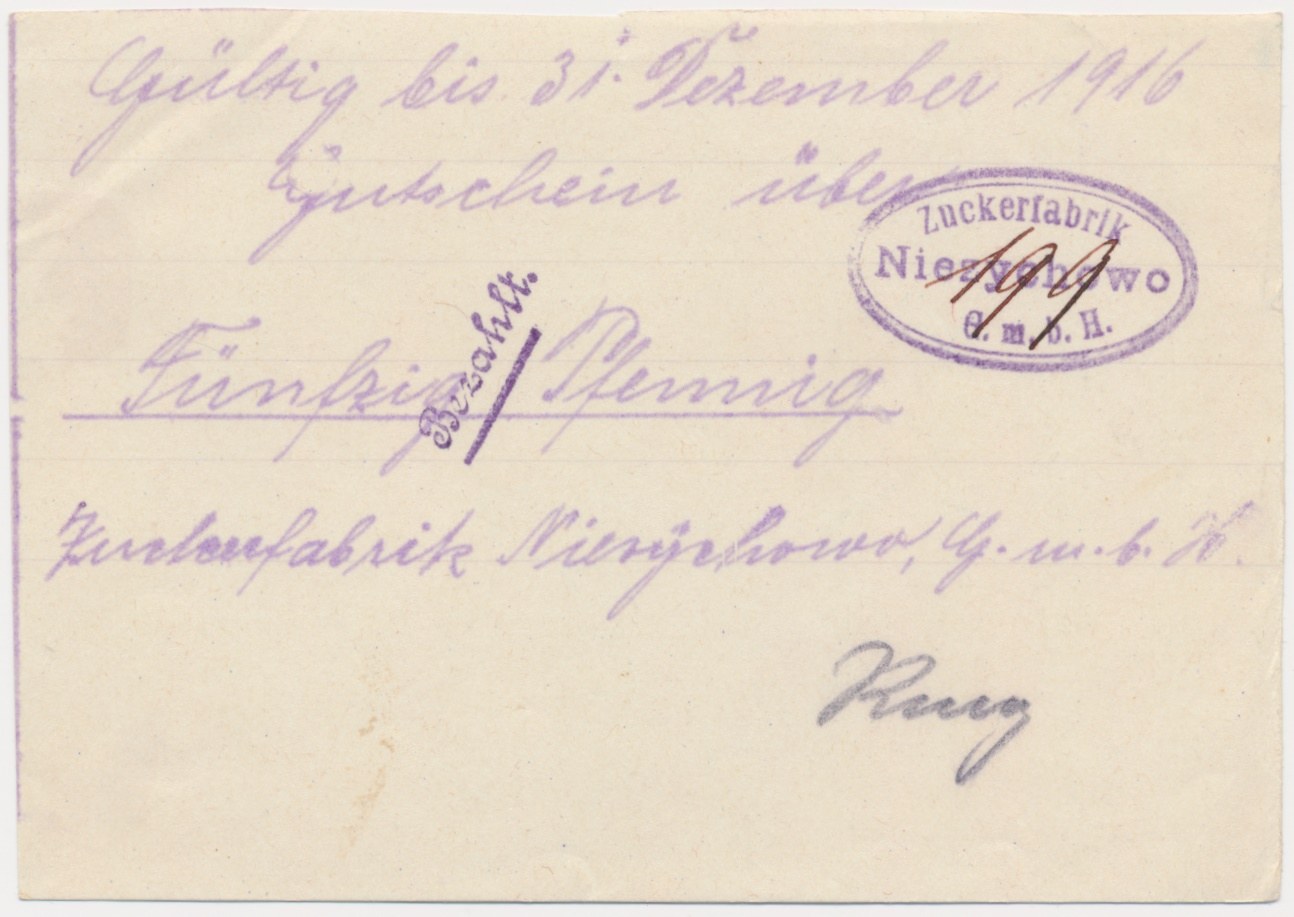 Gültig bis 31. Dezember 1916
Gutschein über
Zuckerfabrik
Niezychowo
G. m. b. H.
199
Fünfzig Pfennig
Bezahlt.
Zuckerfabrik Niezychowo, G. m. b. H.